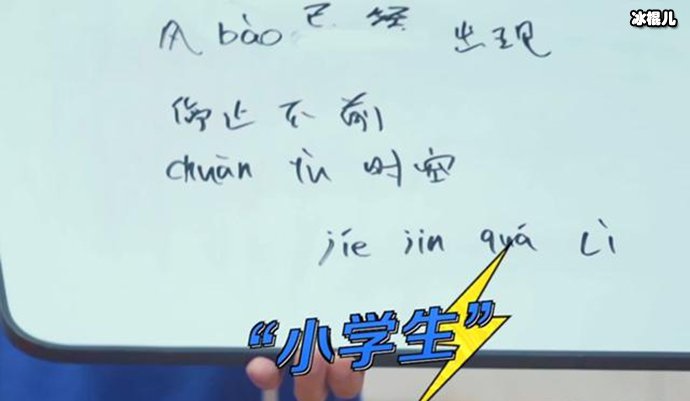 冰棍儿
风 bào 已经 出现
停止不前
chuàn yù 时空
jíe jin quá Lì
“小学生”